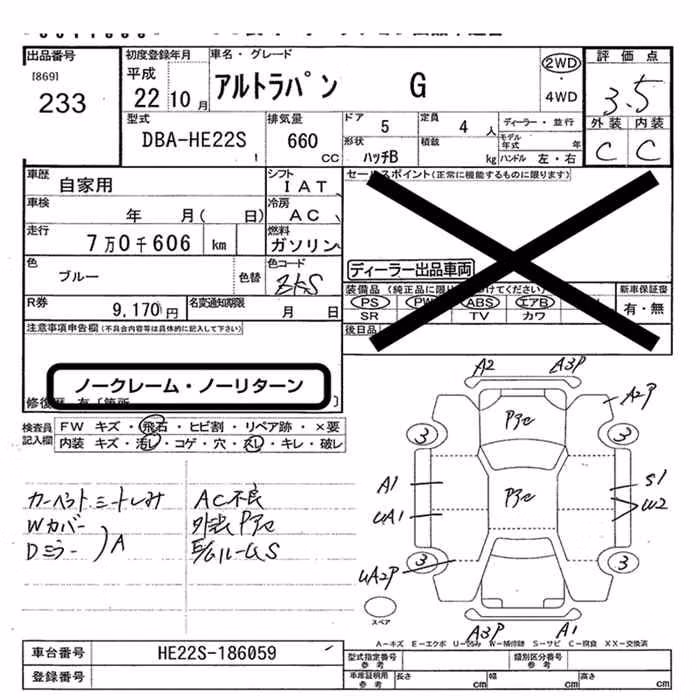 出品番号
[869]
233
初度登録年月
平成
22 10 月
車名・グレード
アルトラパン G
2WD
・
4WD
評価点
3.5
外装 内装
C C
型式
DBA-HE22S
排気量
660
CC
ドア 5
定員 4 人
形状
ハッチB
積載
kg
ディーラー・並行
モデル年式 年
ハンドル 左・右
車歴
自家用
シフト
I AT
セールスポイント(正常に機能するものに限ります)
車検
年 月( 日)
冷房
AC
走行
7万0千606 km
燃料
ガソリン
色
ブルー
色替
色コード
ZKS
ディーラー出品車両
R券
9,170円
名変通知期限
月 日
PS
ABS
エアB
SR
TV
カワ
後日品
新車保証書
有・無
注意事項申告欄(不具合内容等は具体的に記入して下さい)
ノークレーム・ノーリターン
検査員
記入欄
FW キズ・飛石・ヒビ割・リペア跡・×要
内装 キズ・汚レ・コゲ・穴・スレ・キレ・破レ
カーペット.ミートしみ
Wカバー
Dミラー
A
AC不良
外装Pヌケ
E/GルームS
A2
A3P
A2P
Pヌケ
3
3
A1
UA1
Pヌケ
S1
W2
3
3
UA2P
スペア
A3P
A1
A−キズ E−エクボ U−凹み W−補修跡 S−サビ C−腐食 XX−交換済
車台番号
HE22S-186059
登録番号
型式指定番号
参考
類別区分番号
参考
車庫証明用
参考
長さ
cm
幅
cm
高さ
cm